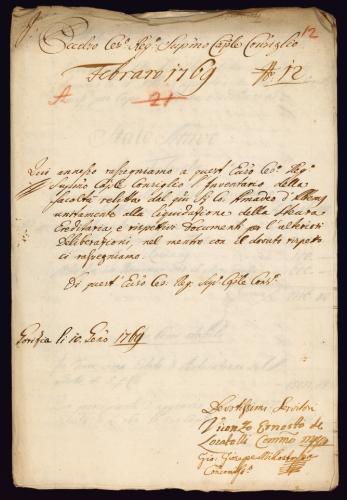 12
Eccelso Ces. Reg. Supmo Caple Consiglio
Febraro 1769 N. 12
A 21
Qui annesso rassegniamo a quest' Ecso Ces. Reg.
Supmo Caple Consiglio l'Inventario della
facoltà relitta dal più Sr Co. Amadeo d'
unitamente alla liquidazione della
Ereditaria e rispettivi Documenti per l'ulteriori
Deliberazioni, nel mentre con il dovuto rispetto
ci rassegniamo.
Di quest' Ecso Ces. Reg. Supo Caple Cons.
Gorizia li 10. Genro 1769
Devotissimi Servitori
Vicenzo Ernesto de
Locatelli Commo
Gio. Giusepe